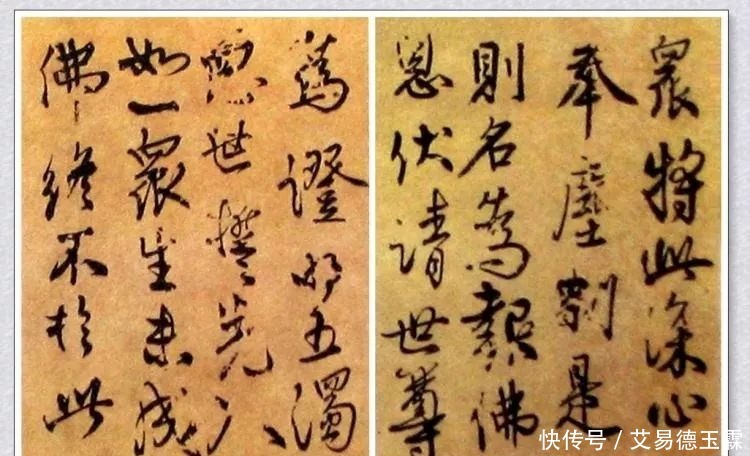 眾將此深心
奉塵剎是
則名為報佛
恩伏請世尊
為證明五濁
惡世誓先入
如一眾生未成
佛終不於此
快传号／艾易德玉霖